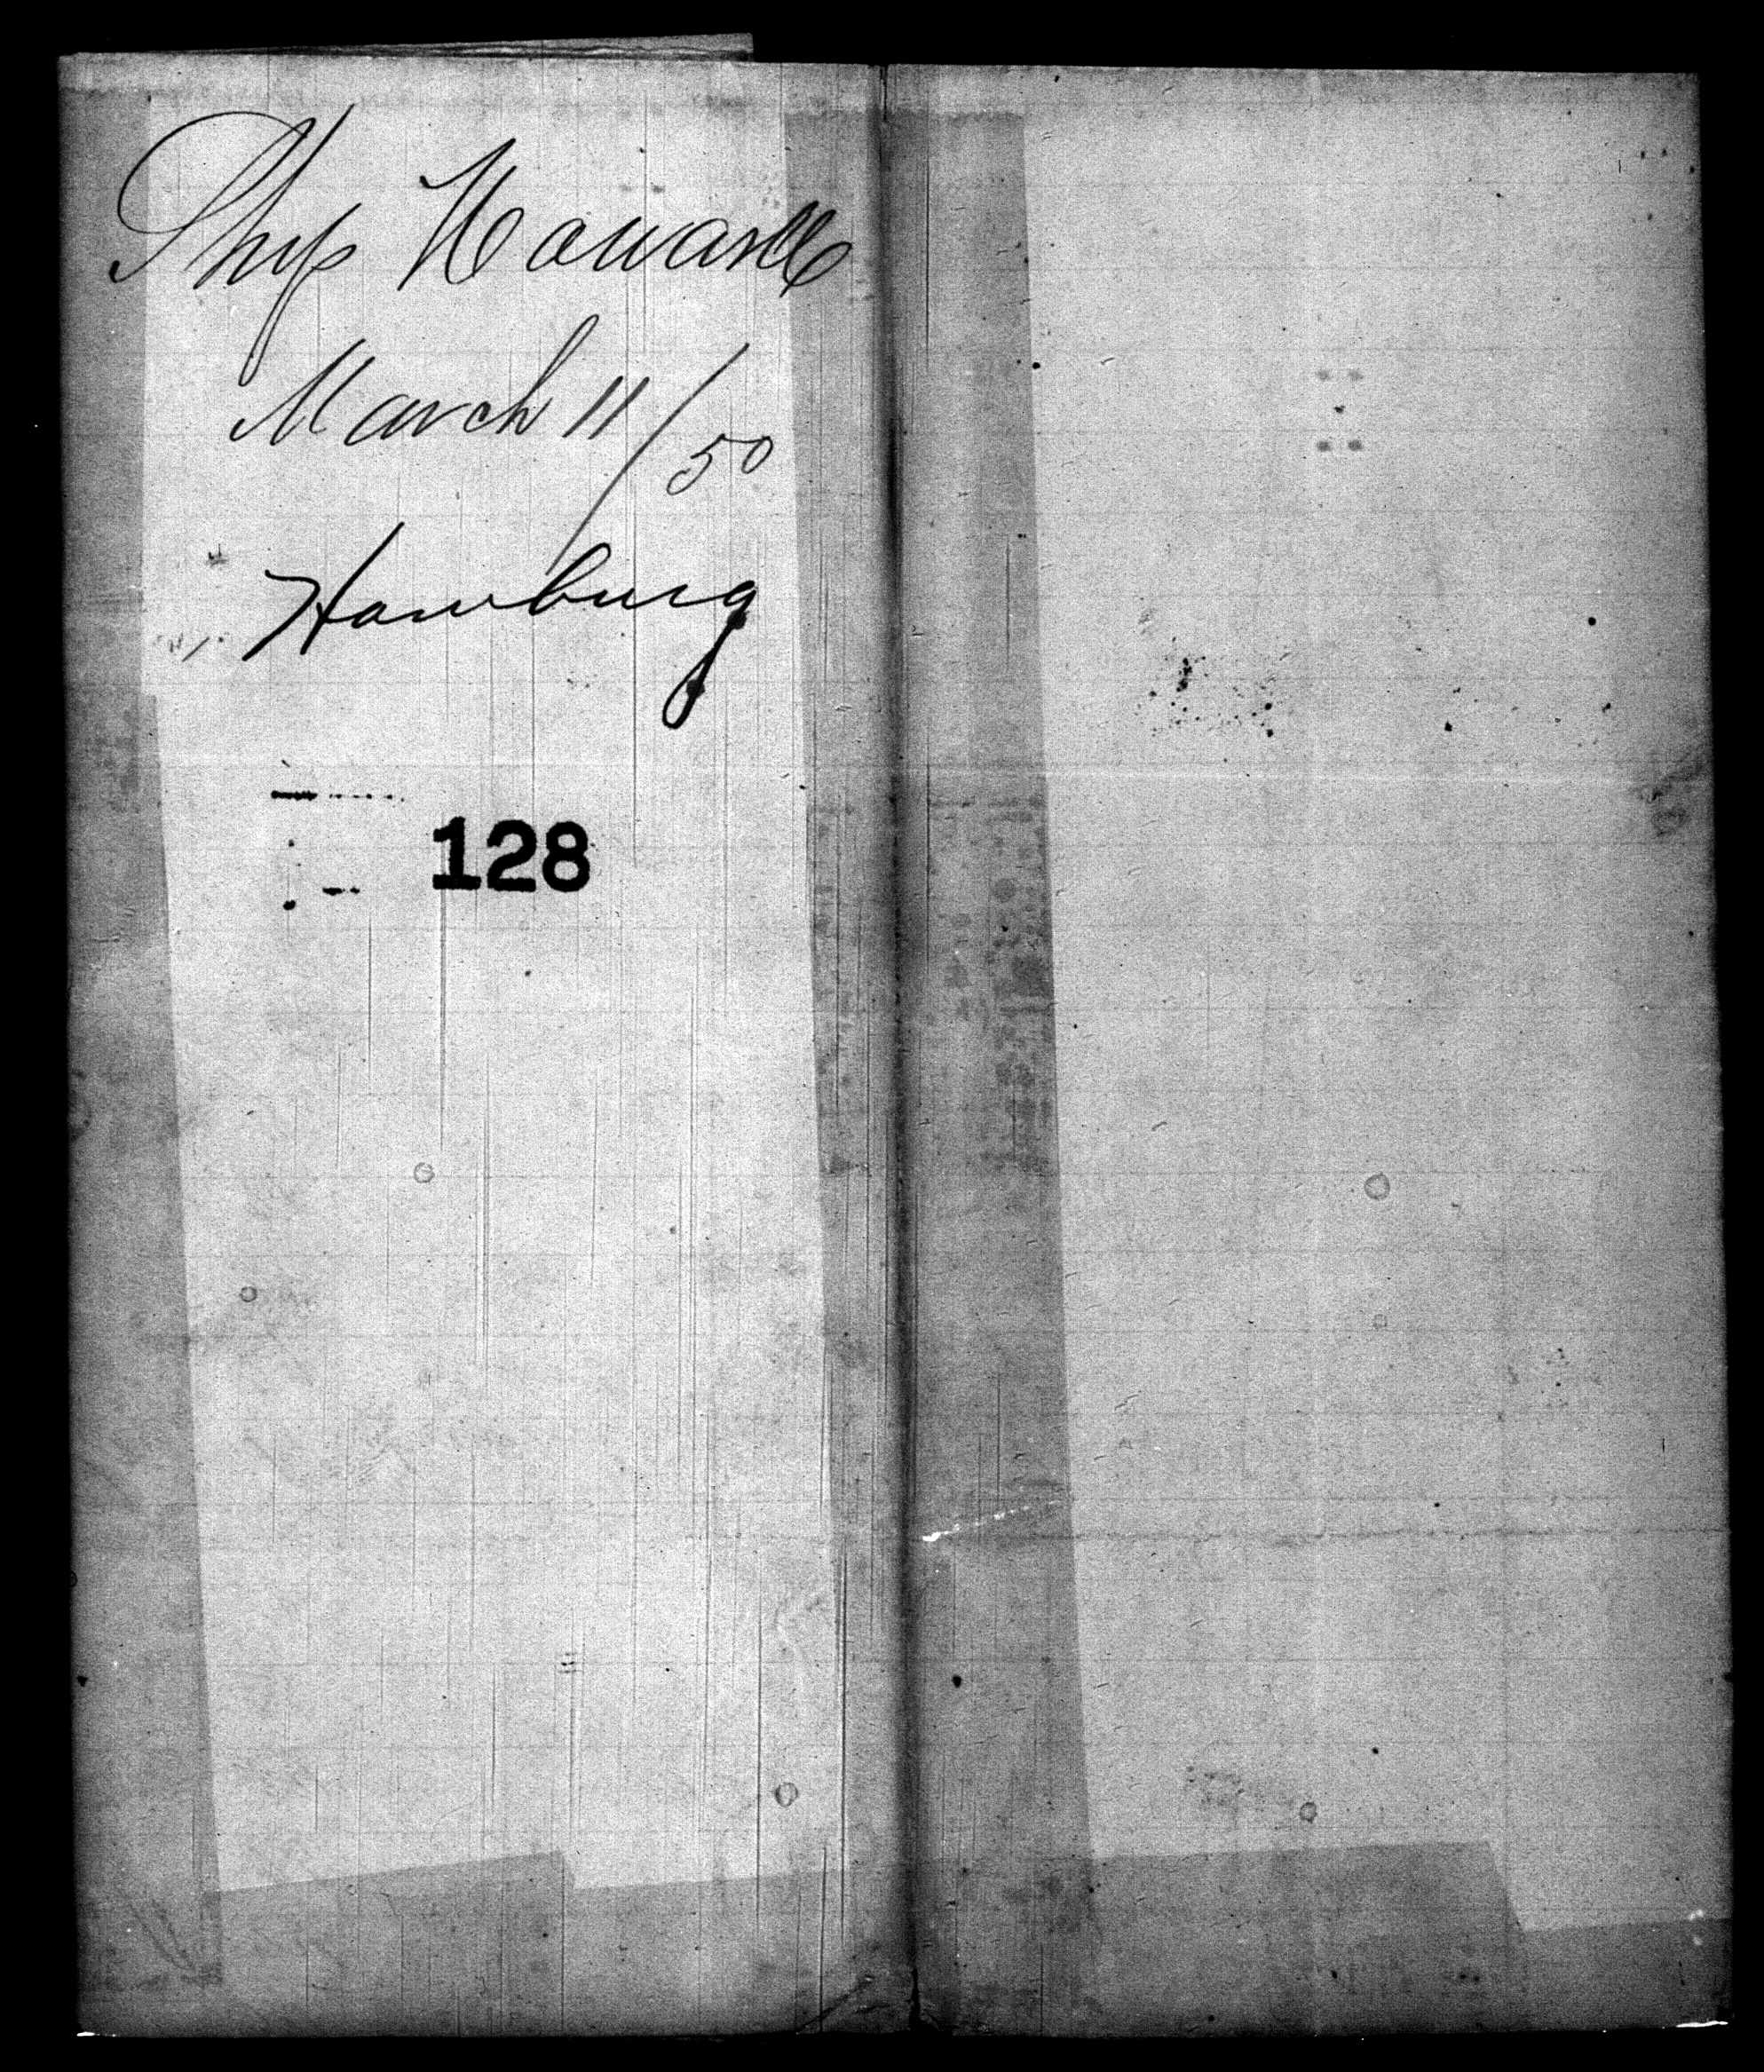 Ship Howard
March 11/50
Hamburg
128